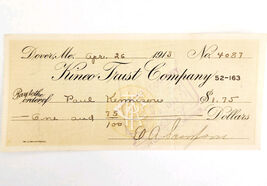 Dover, Me. Apr. 26 1913 No. 4087
Kineo Trust Company 52-163
Pay to the order of Paul Kennison $1.75
One and 75/100 Dollars